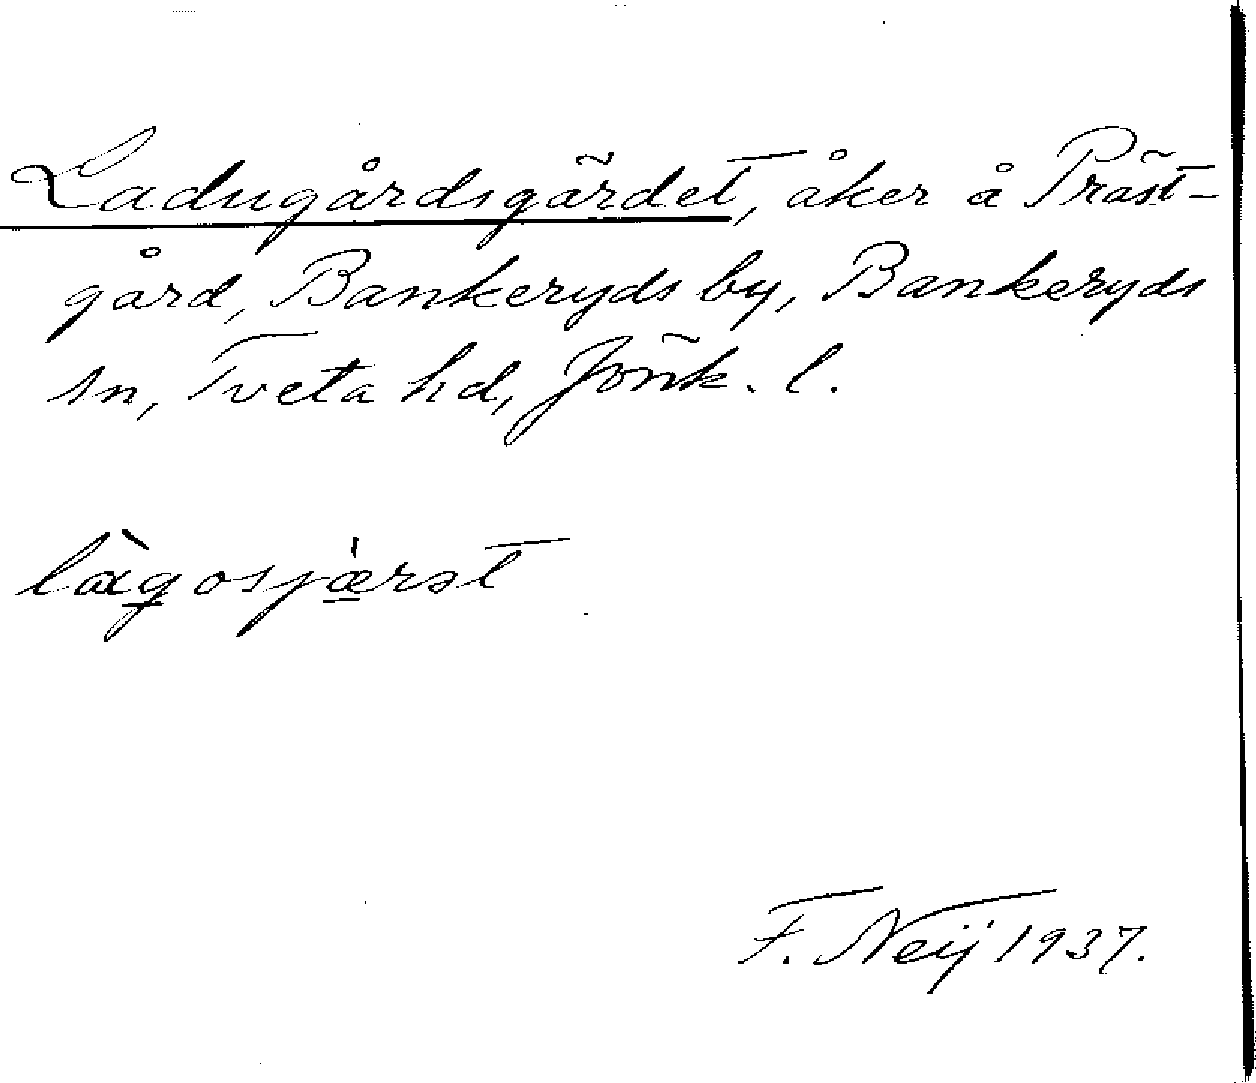 Ladugårdsgärdet, åker å Präst-
gård, Bankeryds by, Bankeryds
sn, Tveta hd, Jönk. l.
làgosjæ̲rət
F. Neij 1937.